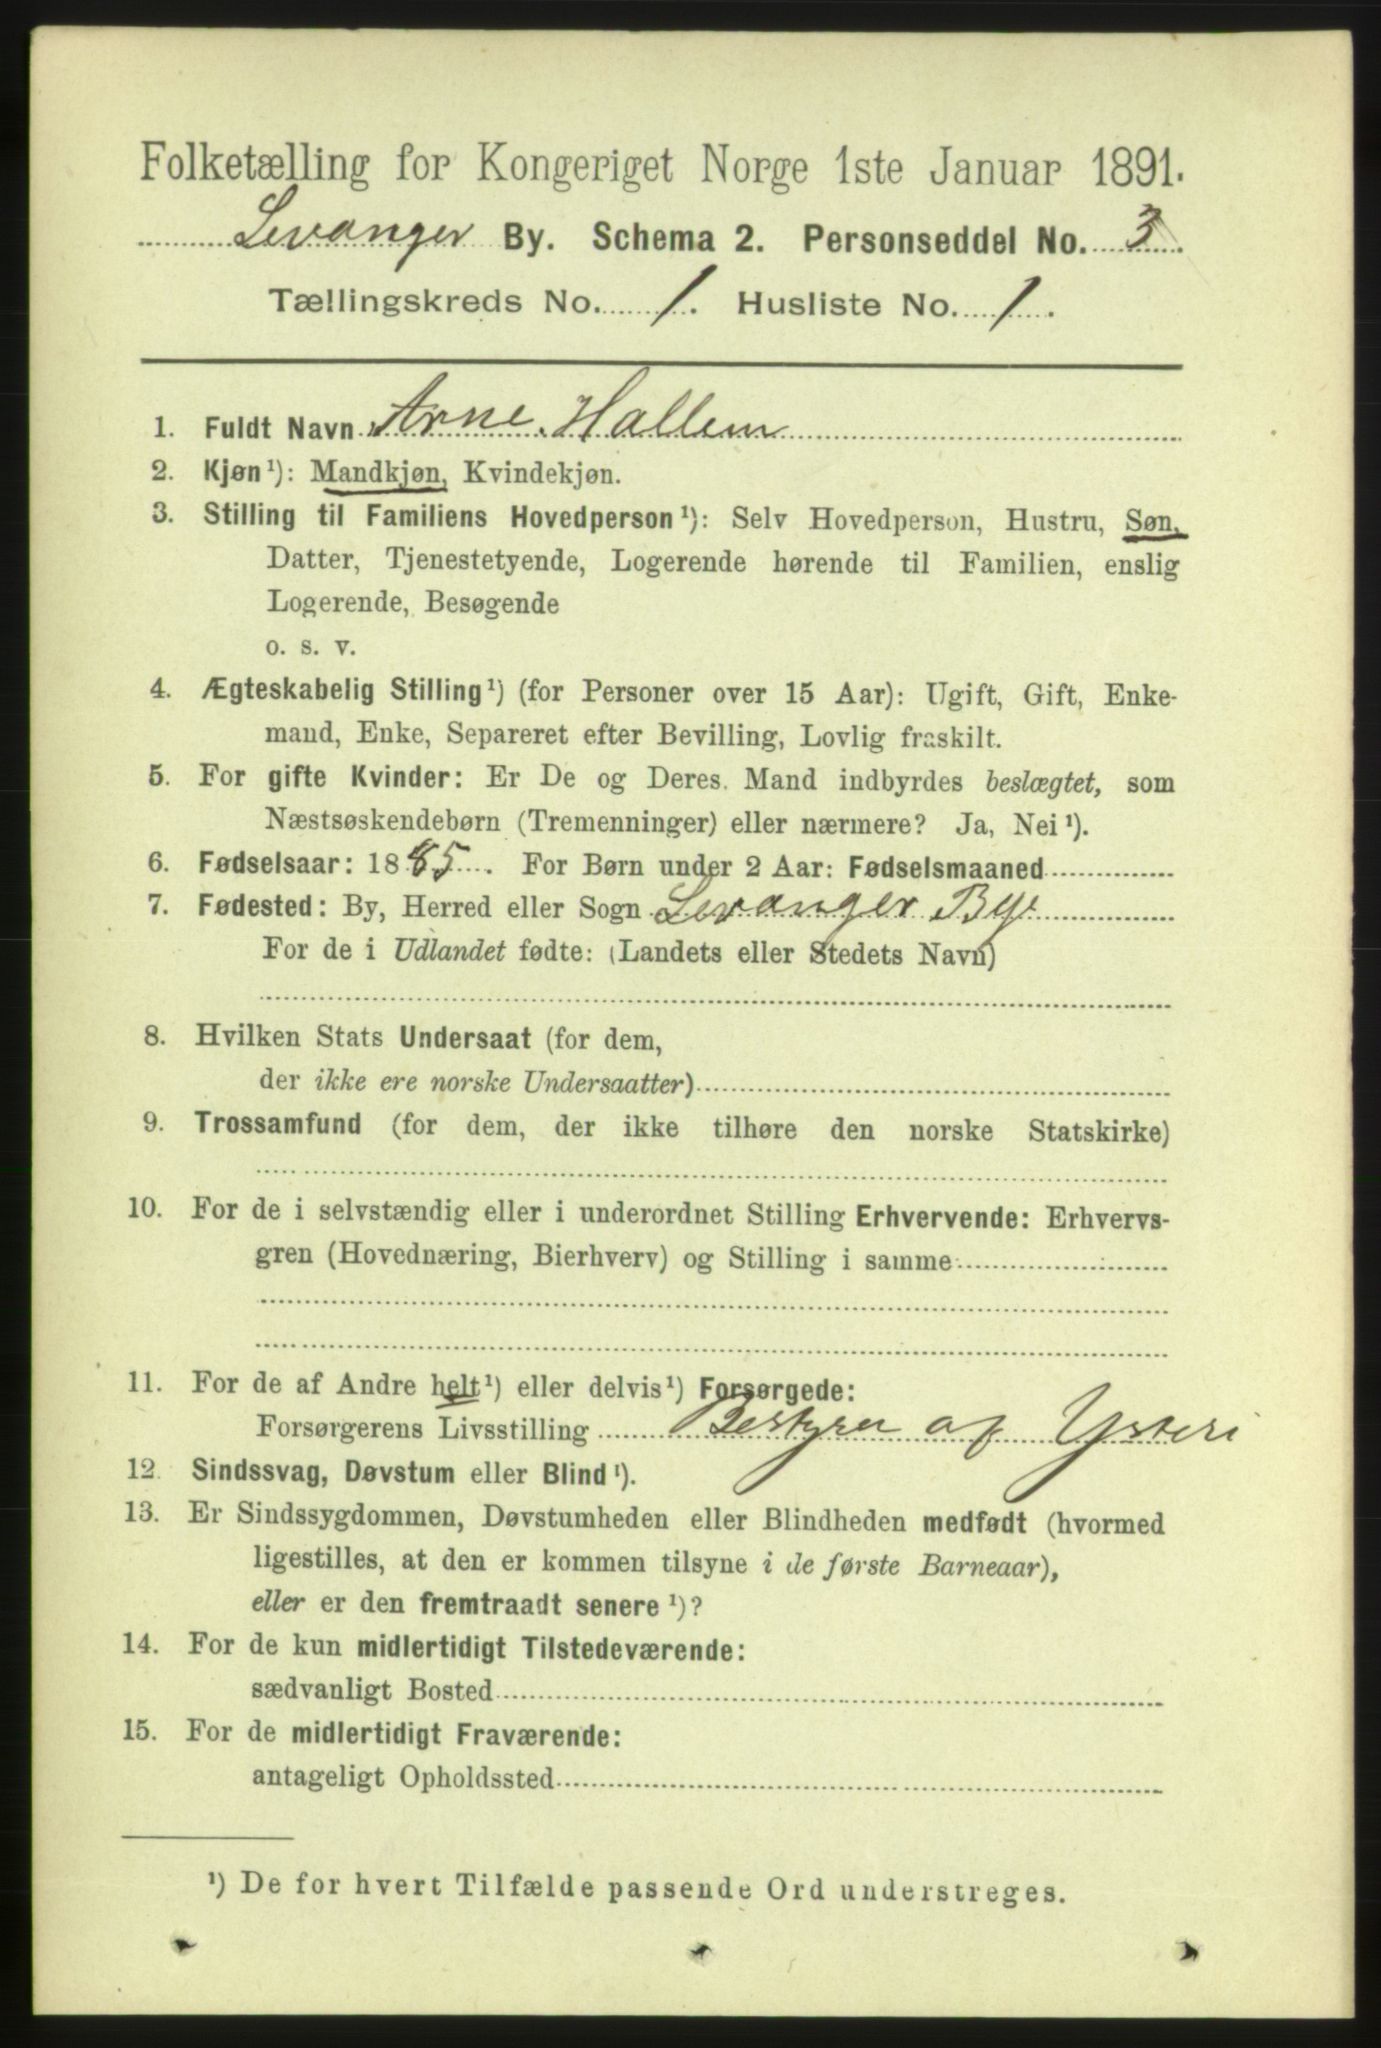 Folketælling for Kongeriget Norge 1ste Januar 1891.
Levanger By. Schema 2. Personseddel No. 3.
Tællingskreds No. 1. Husliste No. 1.
1. Fuldt Navn Arne Hallem
2. Kjøn¹): Mandkjøn, Kvindekjøn.
3. Stilling til Familiens Hovedperson¹): Selv Hovedperson, Hustru, Søn,
Datter, Tjenestetyende, Logerende hørende til Familien, enslig
Logerende, Besøgende
o. s. v.
4. Ægteskabelig Stilling¹) (for Personer over 15 Aar): Ugift, Gift, Enke-
mand, Enke, Separeret efter Bevilling, Lovlig fraskilt.
5. For gifte Kvinder: Er De og Deres Mand indbyrdes beslægtet, som
Næstsøskendebørn (Tremenninger) eller nærmere? Ja, Nei¹).
6. Fødselsaar: 1885. For Børn under 2 Aar: Fødselsmaaned
7. Fødested: By, Herred eller Sogn Levanger By
For de i Udlandet fødte: (Landets eller Stedets Navn)
8. Hvilken Stats Undersaat (for dem,
der ikke ere norske Undersaatter)
9. Trossamfund (for dem, der ikke tilhøre den norske Statskirke)
10. For de i selvstændig eller i underordnet Stilling Erhvervende: Erhvervs-
gren (Hovednæring, Bierhverv) og Stilling i samme
11. For de af Andre helt¹) eller delvis¹) Forsørgede:
Forsørgerens Livsstilling Bestyrer af Ysteri
12. Sindssvag, Døvstum eller Blind¹).
13. Er Sindssygdommen, Døvstumheden eller Blindheden medfødt (hvormed
ligestilles, at den er kommen tilsyne i de første Barneaar),
eller er den fremtraadt senere¹)?
14. For de kun midlertidigt Tilstedeværende:
sædvanligt Bosted
15. For de midlertidigt Fraværende:
antageligt Opholdssted
¹) De for hvert Tilfælde passende Ord understreges.